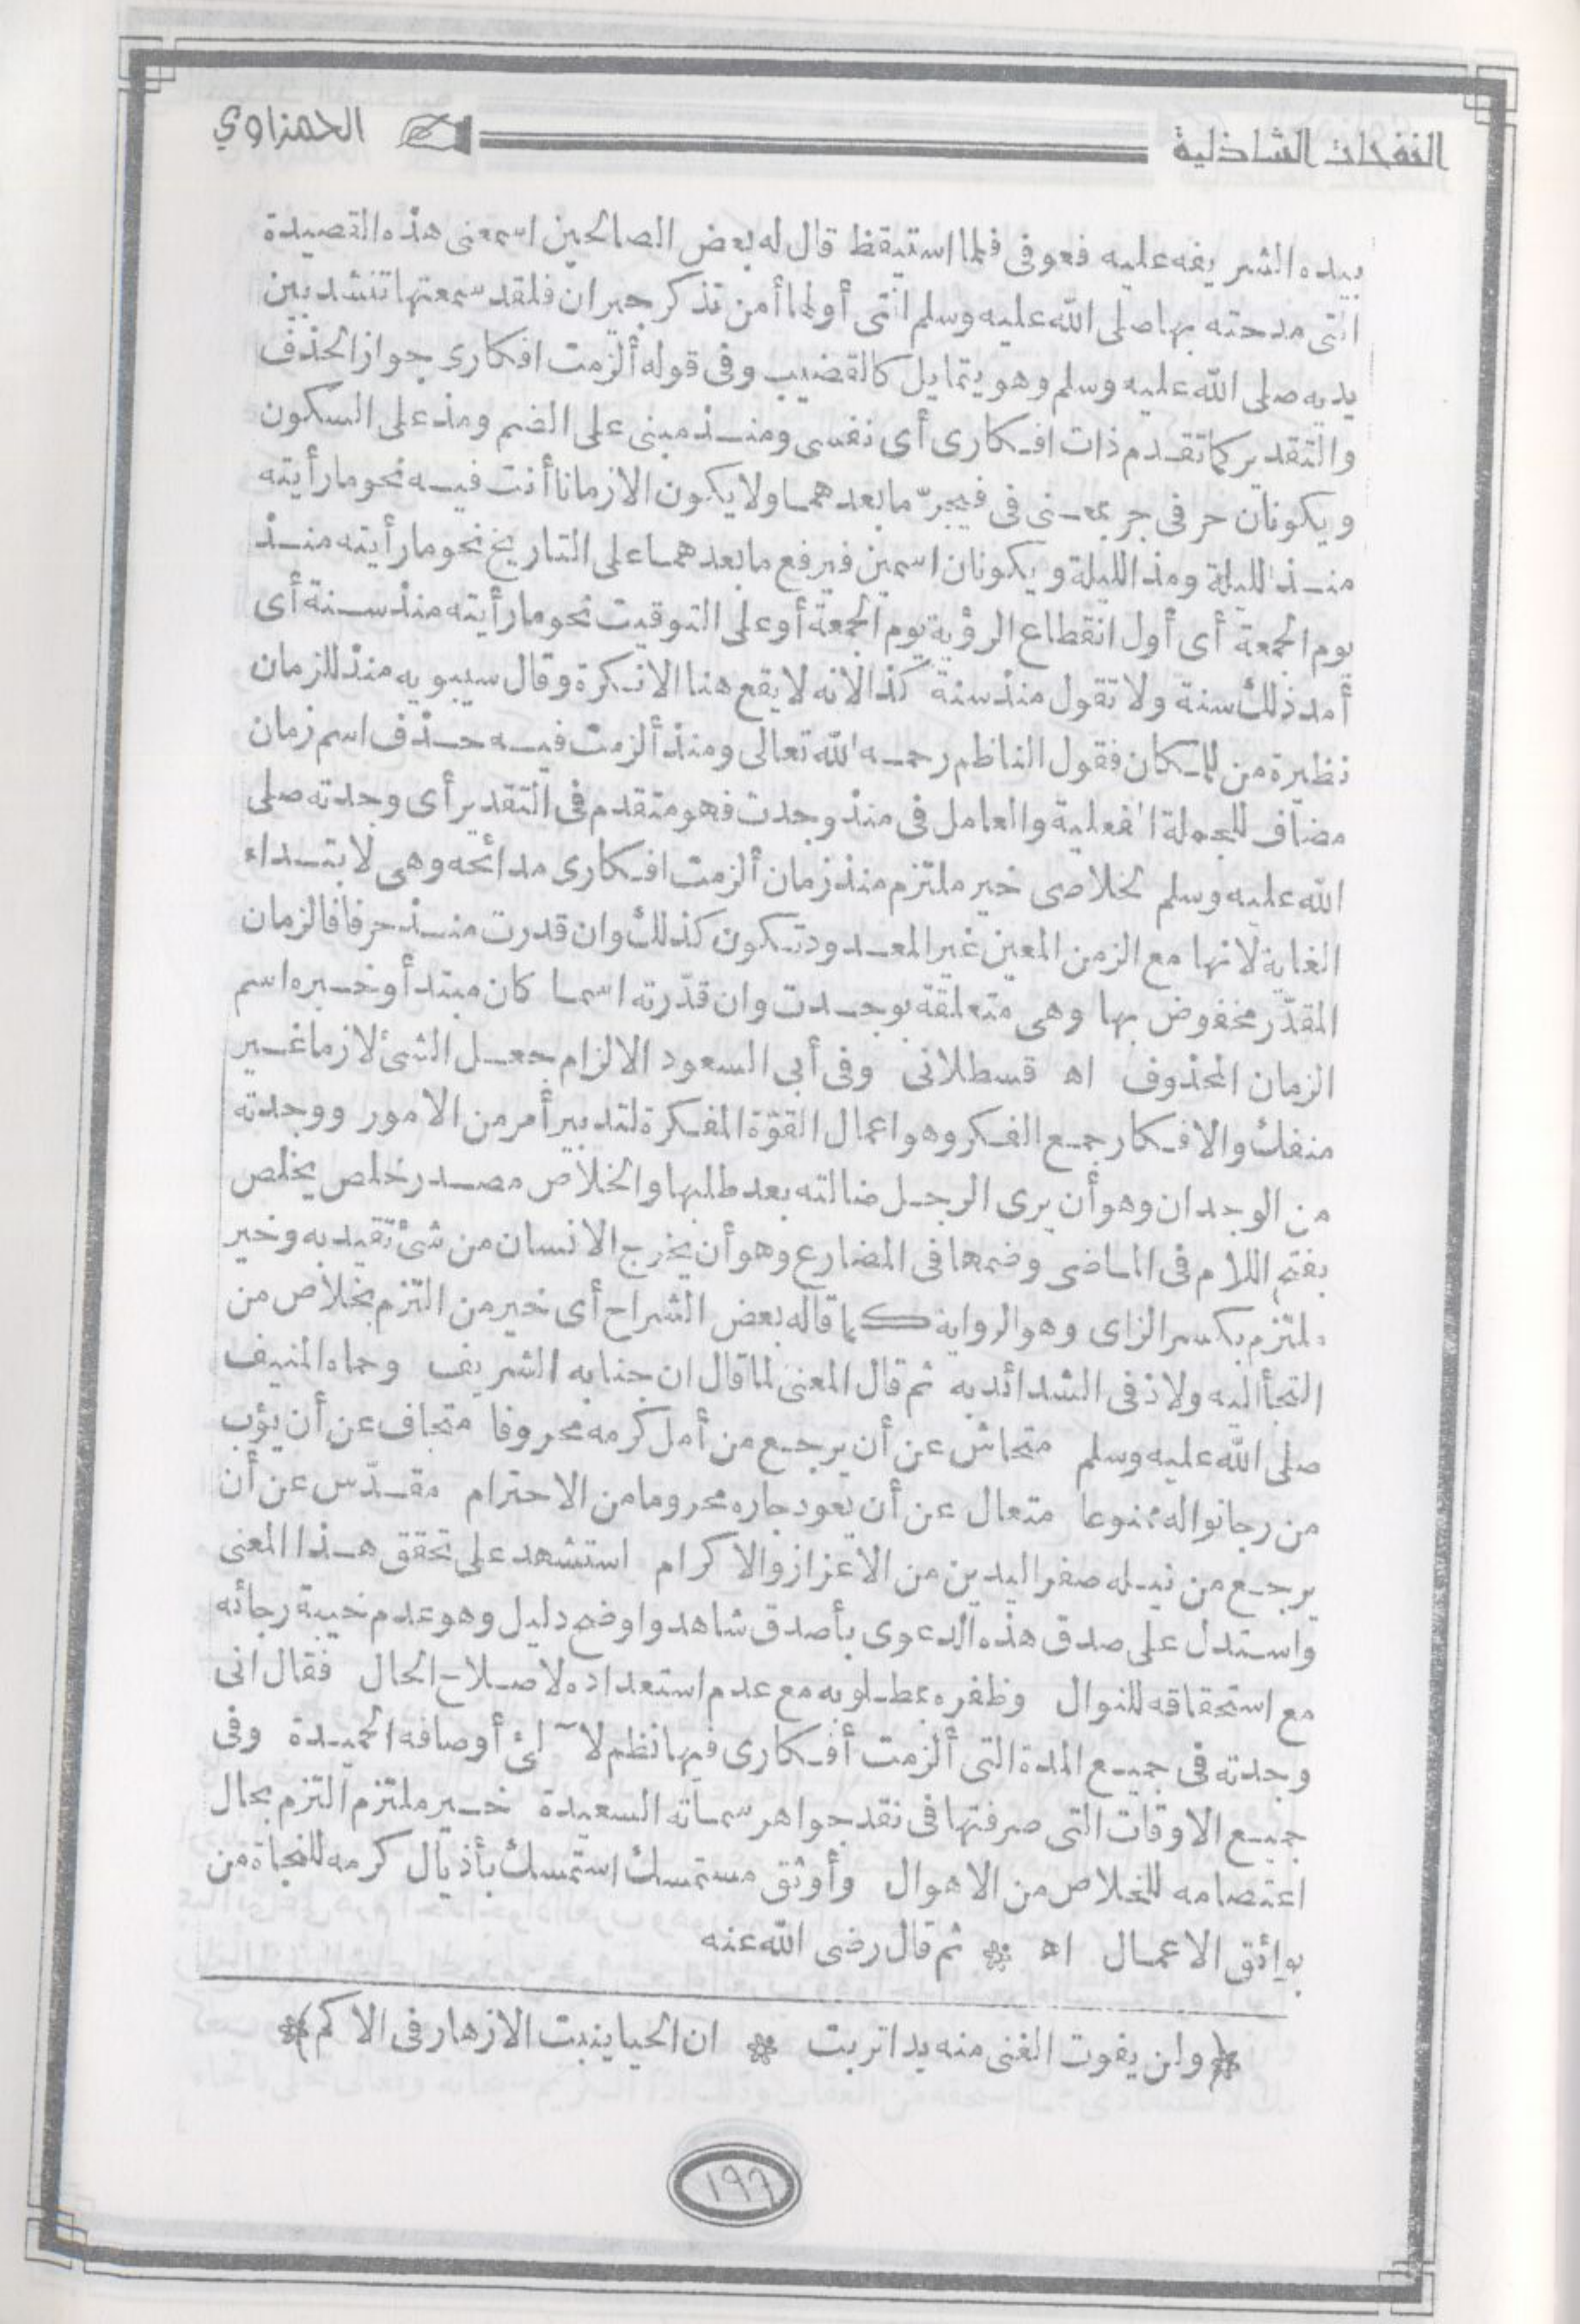 النفحات الشاذلية
الحمزاوي
بيده الشريفة عليه فعوفى فلما استيقظ قال له بعض الصالحين اسمعنى هذه القصيدة
التى مدحته بها صلى الله عليه وسلم التى أولها أمن تذكر جيران فلقد سمعتها تنشد بين
يديه صلى الله عليه وسلم وهو يتمايل كالقضيب وفى قوله ألزمت افكارى جواز الحذف
والتقدير كما تقدم ذات افكارى أى نفسى ومنذ مبنى على الضم ومذ على السكون
ويكونان حرفى جر بمعنى فى فيجرّ ما بعدهما ولا يكون الا زمانا أنت فيه نحو ما رأيته
منذ الليلة ومذ الليلة ويكونان اسمين فيرفع ما بعدهما على التاريخ نحو ما رأيته منذ
يوم الجمعة أى أول انقطاع الرؤية يوم الجمعة أو على التوقيت نحو ما رأيته منذ سنة أى
أمد ذلك سنة ولا تقول منذ سنة كذا لانه لا يقع هنا الا نكرة وقال سيبويه منذ للزمان
نظيرة من للمكان فقول الناظم رحمه الله تعالى ومنذ ألزمت فيه حذف اسم زمان
مضاف للجملة الفعلية والعامل فى منذ وجدت فهو متقدم فى التقدير أى وجدته صلى
الله عليه وسلم لخلاصى خير ملتزم منذ زمان ألزمت افكارى مدائحه وهى لابتداء
الغاية لانها مع الزمن المعين غير المعدود تكون كذلك وان قدرت منذ حرفا فالزمان
المقدّر مخفوض بها وهى متعلقة بوجدت وان قدّرته اسما كان مبتدأ وخبره اسم
الزمان المحذوف اه قسطلانى وفى أبى السعود الالزام جعل الشئ لازما غير
منفك والافكار جمع الفكر وهو اعمال القوّة المفكرة لتدبير أمر من الامور ووجدته
من الوجدان وهو أن يرى الرجل ضالته بعد طلبها والخلاص مصدر خلص يخلص
بفتح اللام فى الماضى وضمها فى المضارع وهو أن يخرج الانسان من شئ تقيد به وخير
ملتزم بكسر الزاى وهو الرواية كما قاله بعض الشراح أى خير من التزم بخلاص من
التجأ اليه ولاذ فى الشدائد به ثم قال المعنى لما قال ان جنابه الشريف وحماه المنيف
صلى الله عليه وسلم متحاش عن أن يرجع من أمل كرمه محروفا متجاف عن أن يؤب
من رجا نواله ممنوعا متعال عن أن يعود جاره محروما من الاحترام مقدّس عن أن
يرجع من نيله صفر اليدين من الاعزاز والاكرام استشهد على تحقق هذا المعنى
واستدل على صدق هذه الدعوى بأصدق شاهد واوضح دليل وهو عدم خيبة رجائه
مع استحقاقه للنوال وظفره بمطلوبه مع عدم استعداده لاصلاح الحال فقال انى
وجدته فى جميع المدة التى ألزمت أفكارى فيها نظم لآلئ أوصافه الحميدة وفى
جميع الاوقات التى صرفتها فى نقد جواهر سماته السعيدة خير ملتزم التزم بحال
اعتصامه للخلاص من الاهوال وأوثق مستمسك استمسك بأذيال كرمه للنجاة من
بوائق الاعمال اه * ثم قال رضى الله عنه
(ولن يفوت الغنى منه يدا تربت * ان الحيا ينبت الازهار فى الاكم)
١٩٦